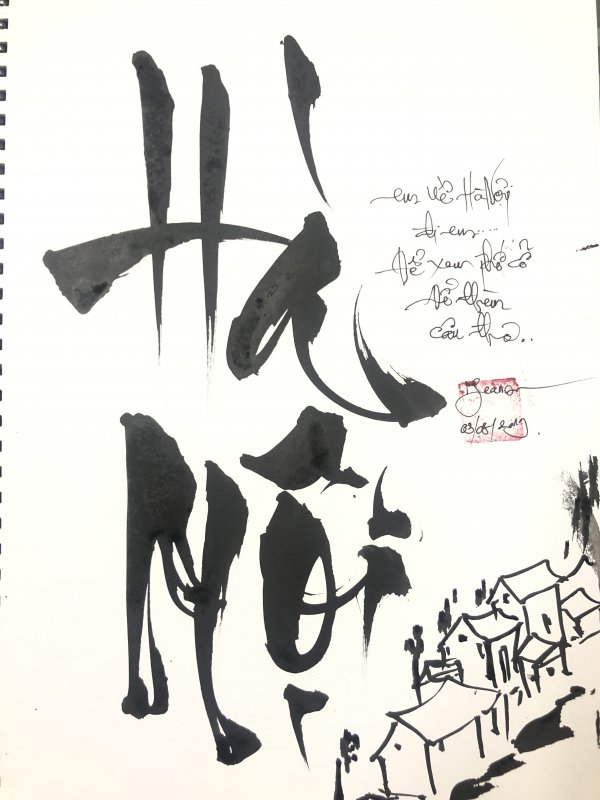 Hà
Nội
em về Hà Nội
đi em...
Để xem phố cổ
để thêm
câu thơ..